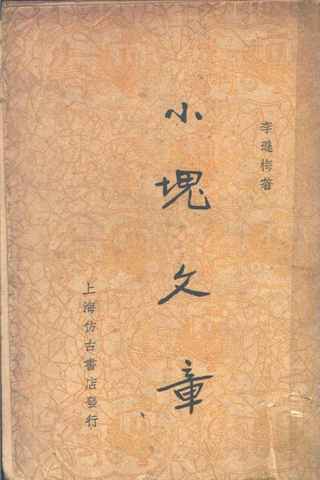 李遜梅著
小塊文章
上海仿古書店發行